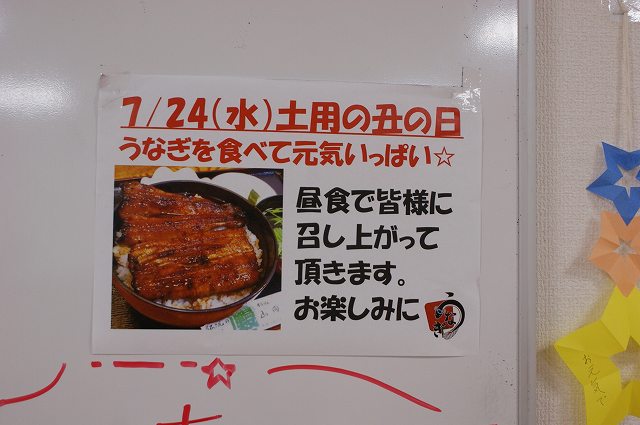 7/24(水)土用の丑の日
うなぎを食べて元気いっぱい☆
昼食で皆様に
召し上がって
頂きます。
お楽しみに
お元気で